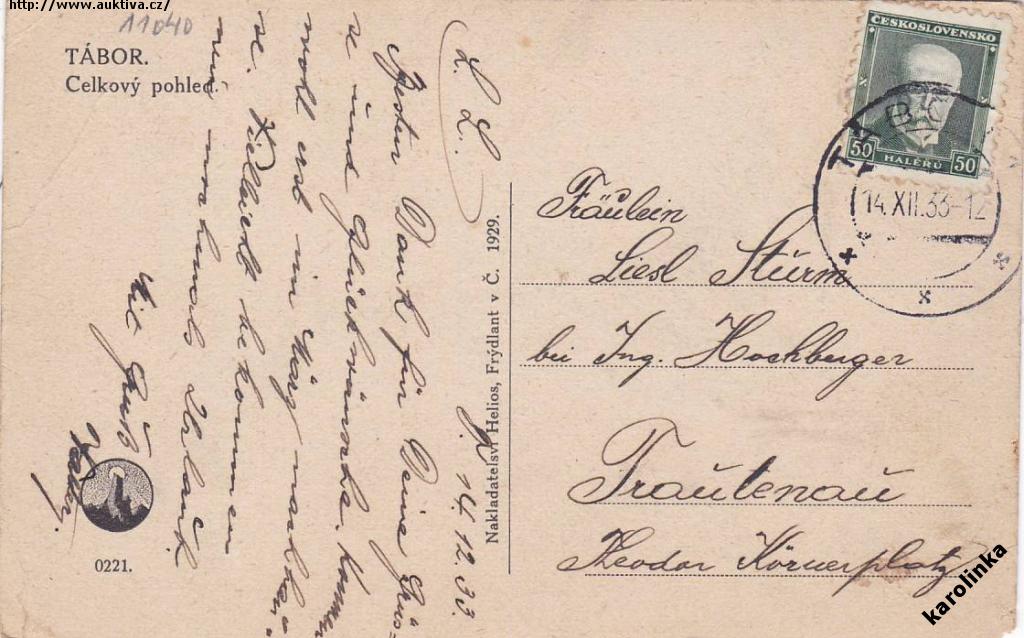 http://www.auktiva.cz/
11040
TÁBOR.
Celkový pohled.
L. L.
14.12.33.
Besten Dank für Deine Grüs=
se und Glückwünsche. Kommen
wohl erst im März nach hau=
se. Vielleicht bekommen
wir nochmals Urlaub.
Mit Gruß
0221.
Nakladatelsví Helios, Frýdlant v Č. 1929.
ČESKOSLOVENSKO
50 HALÉŘŮ 50
14.XII.33-12
Fräulein
Liesl Sturm
bei Ing. Hochberger
Trautenau
Theodor Körnerplatz
karolinka